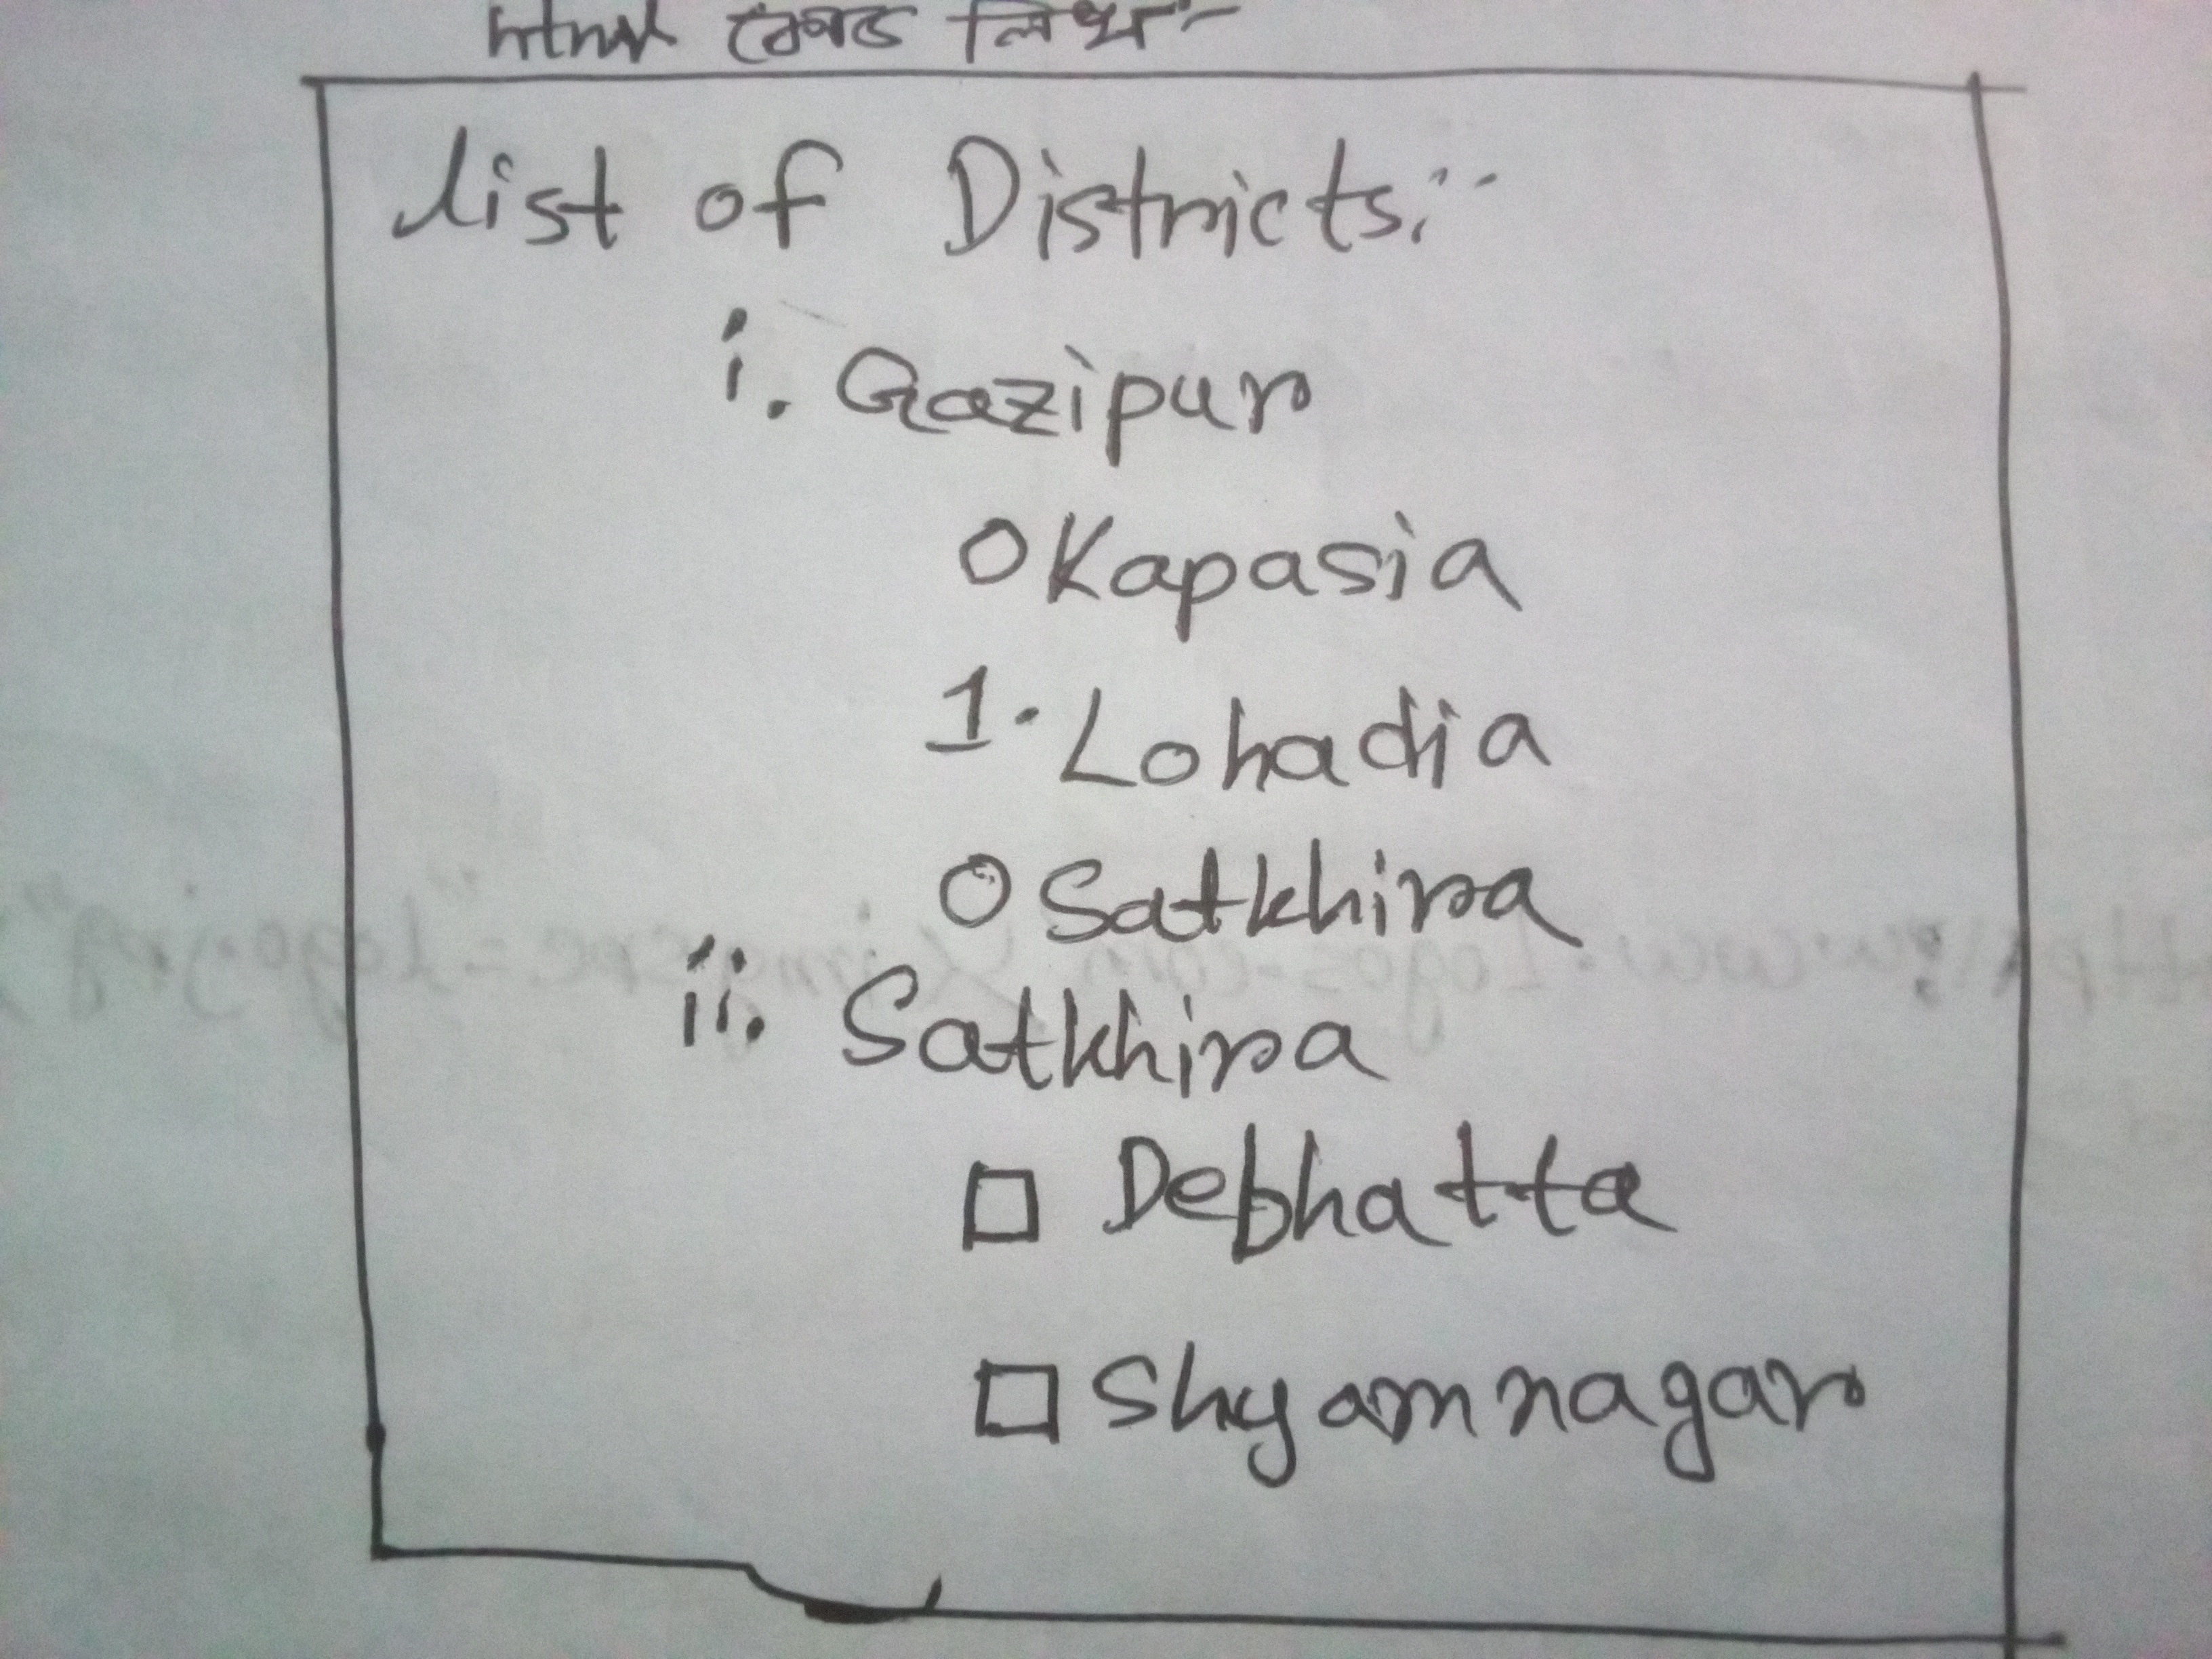 html কোড লিখ:-
List of Districts:-
i. Gazipur
O Kapasia
1. Lohadia
O Satkhira
ii. Satkhira
□ Debhatta
□ Shyamnagar